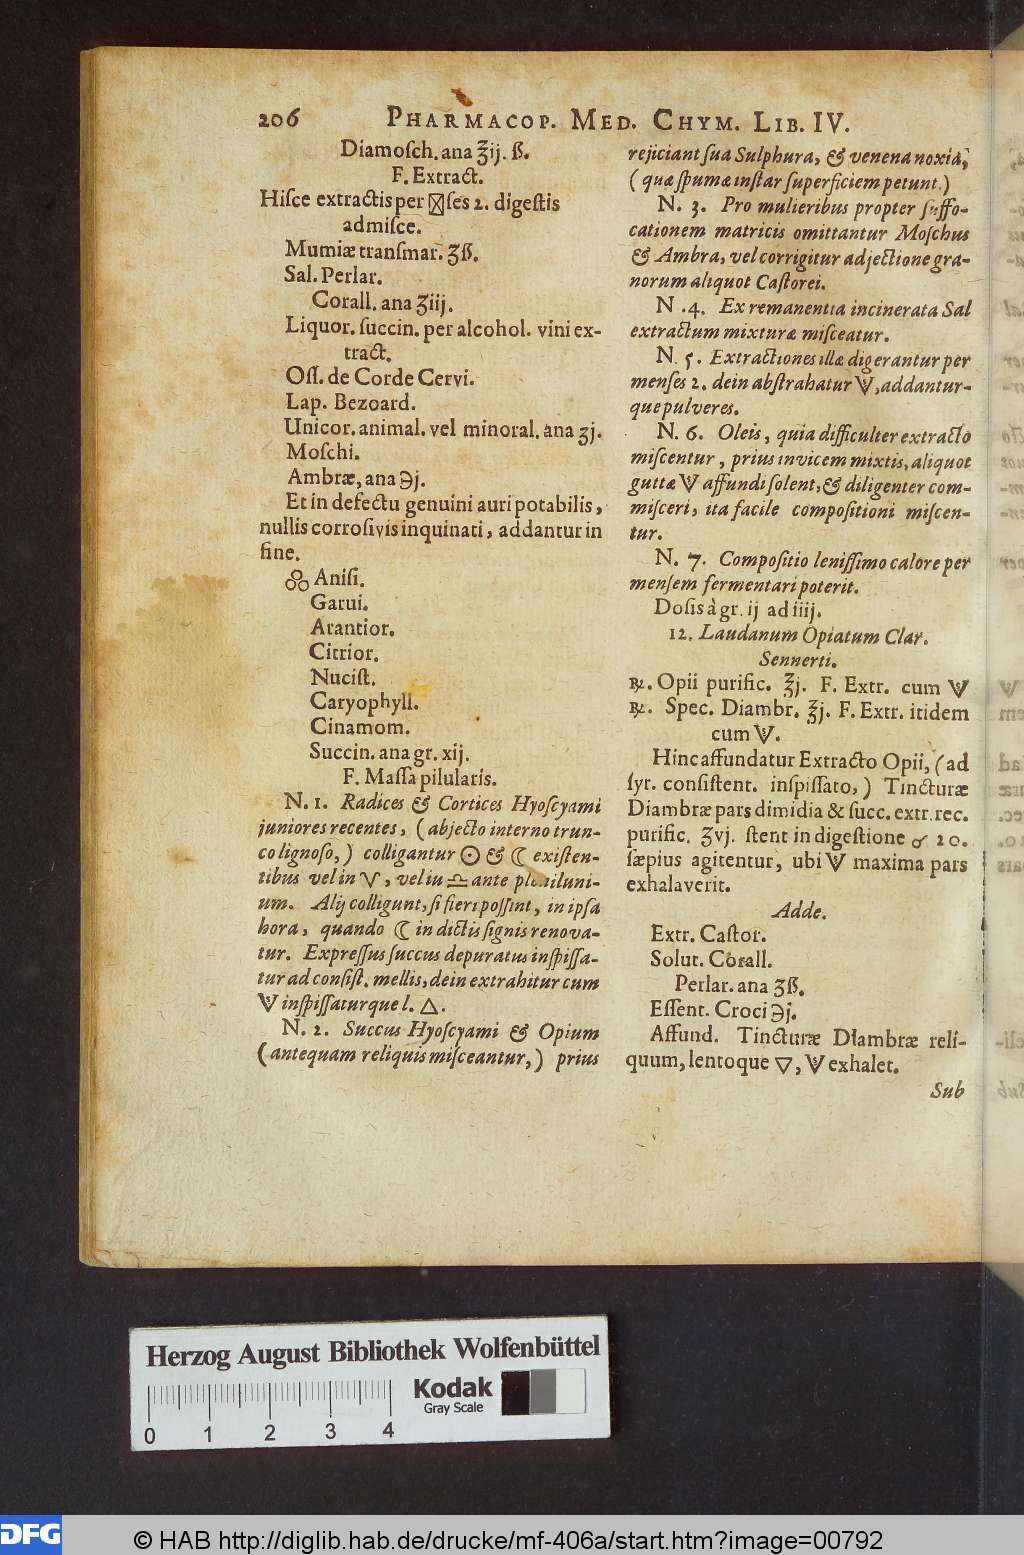 206 PHARMACOP. MED. CHYM. LIB. IV.
Diamosch. ana ℥ij. ß.
F. Extract.
Hisce extractis per ⊠ses 2. digestis
admisce.
Mumiæ transmar. ʒß.
Sal. Perlar.
Corall. ana ʒiij.
Liquor. succin. per alcohol. vini ex-
tract.
Oss. de Corde Cervi.
Lap. Bezoard.
Unicor. animal. vel minoral. ana ʒj.
Moschi.
Ambræ, ana ℈j.
Et in defectu genuini auri potabilis,
nullis corrosivis inquinati, addantur in
fine.
Anisi.
Garui.
Arantior.
Citrior.
Nucist.
Caryophyll.
Cinamom.
Succin. ana gr. xij.
F. Massa pilularis.
N. 1. Radices & Cortices Hyoscyami
juniores recentes, (abjecto interno trun-
co lignoso,) colligantur ☉ & ☾ existen-
tibus vel in ♈, vel iu ♎ ante pleniluni-
um. Alij colligunt, si fieri possint, in ipsa
hora, quando ☾ in dictis signis renova-
tur. Expressus succus depuratus inspissa-
tur ad consist. mellis, dein extrahitur cum
inspissaturque l. △.
N. 2. Succus Hyoscyami & Opium
(antequam reliquis misceantur,) prius
rejiciant sua Sulphura, & venena noxia,
(quæ spumæ instar superficiem petunt.)
N. 3. Pro mulieribus propter suffo-
cationem matricis omittantur Moschus
& Ambra, vel corrigitur adjectione gra-
norum aliquot Castorei.
N .4. Ex remanentia incinerata Sal
extractum mixturæ misceatur.
N. 5. Extractiones illæ digerantur per
menses 2. dein abstrahatur , addantur-
que pulveres.
N. 6. Oleis, quia difficulter extracto
miscentur, prius invicem mixtis, aliquot
guttæ affundi solent, & diligenter com-
misceri, ita facile compositioni miscen-
tur.
N. 7. Compositio lenissimo calore per
mensem fermentari poterit.
Dosis à gr. ij ad iiij.
12. Laudanum Opiatum Clar.
Sennerti.
℞. Opii purific. ℥j. F. Extr. cum
℞. Spec. Diambr. ℥j. F. Extr. itidem
cum .
Hinc affundatur Extracto Opii, (ad
syr. consistent. inspissato,) Tincturæ
Diambræ pars dimidia & succ. extr. rec.
purific. ʒvj. stent in digestione 20.
sæpius agitentur, ubi maxima pars
exhalaverit.
Adde.
Extr. Castor.
Solut. Corall.
Perlar. ana ʒß.
Essent. Croci ℈j.
Affund. Tincturæ DIambræ reli-
quum, lentoque ▽, exhalet.
Sub
Herzog August Bibliothek Wolfenbüttel
Kodak
Gray Scale
0 1 2 3 4
DFG
© HAB http://diglib.hab.de/drucke/mf-406a/start.htm?image=00792